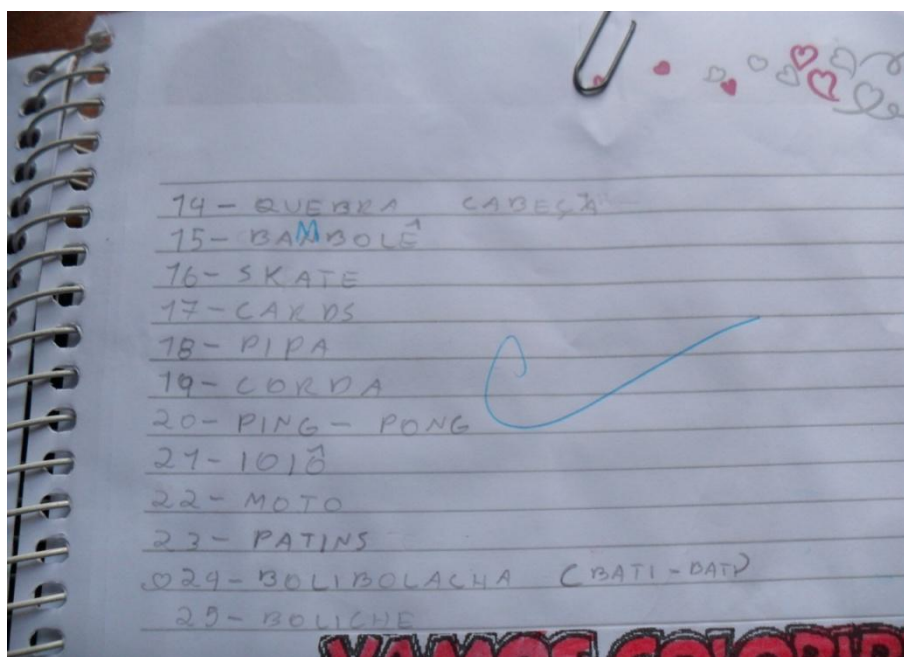 14 - QUEBRA CABEÇA
15 - BAMBOLÊ
16 - SKATE
17 - CARDS
18 - PIPA
19 - CORDA
20 - PING - PONG
21 - IOIÔ
22 - MOTO
23 - PATINS
24 - BOLIBOLACHA (BATI - BATI)
25 - BOLICHE
VAMOS COLORIR